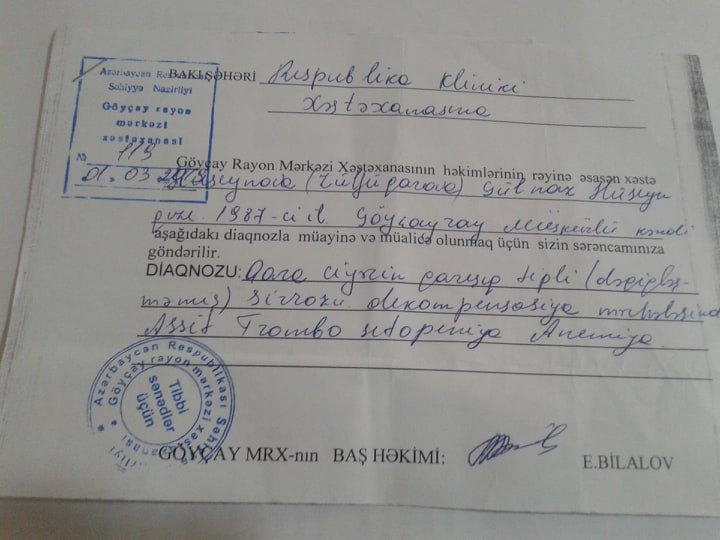 Azərbaycan Respublikası
Səhiyyə Nazirliyi
Göyçay rayon
mərkəzi
xəstəxanası
№ 113
01.03
BAKI ŞƏHƏRİ Respublika Kliniki
Xəstəxanasına
Göyçay Rayon Mərkəzi Xəstəxanasının həkimlərinin rəyinə əsasən xəstə
Hüseynova (Zülfüqarova) Gülnaz Hüseyn
1987-ci il Göyçay ray Müşkürlü kəndi
aşağıdakı diaqnozla müayinə və müalicə olunmaq üçün sizin sərəncamınıza
göndərilir.
DİAQNOZU: Qara ciyərin qarışıq tipli (dəqiqləş-
məmiş) sirrozu dekompensasiya mərhələsində
Assit Trombositopeniya Anemiya.
Azərbaycan Respublikası Səhiyyə
Göyçay rayon mərkəzi xəstəxanası
Tibbi
sənədlər
üçün
GÖYÇAY MRX-nın BAŞ HƏKİMİ: E.BİLALOV